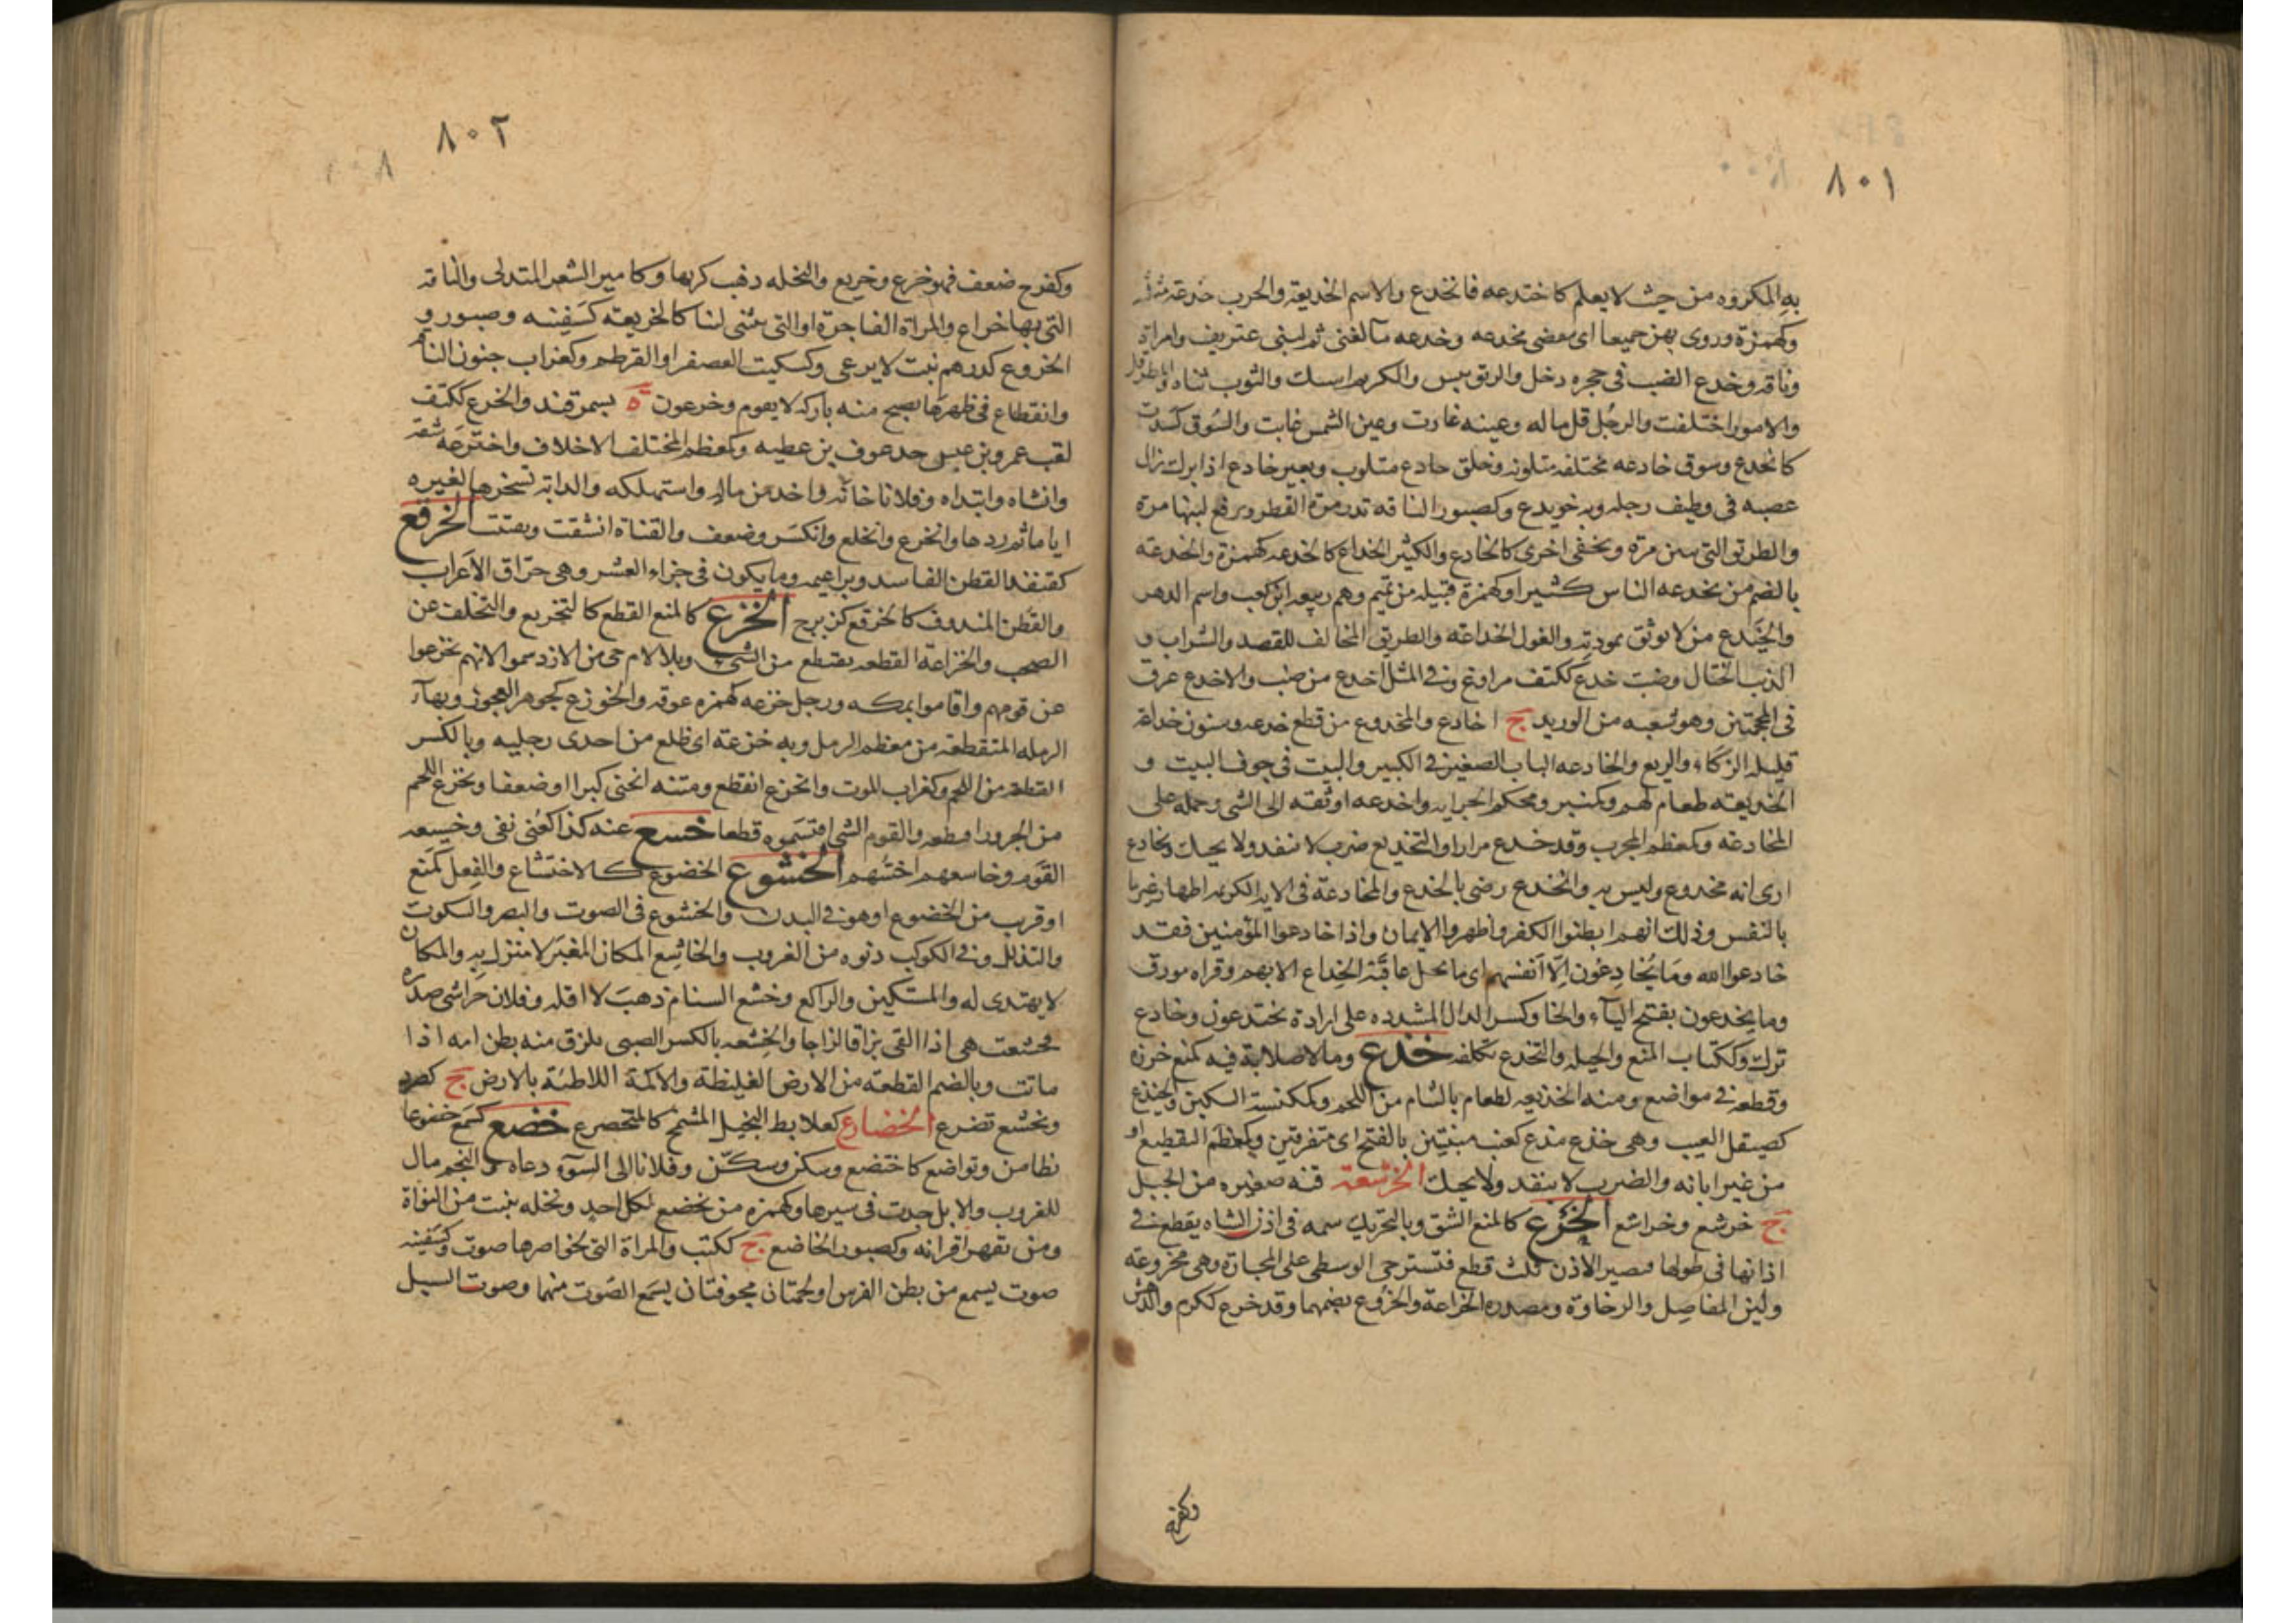 ٨٠١
به المكروه من حيث لا يعلم كاختدعه فانخدع والاسم الخديعة والحرب خدعة مثلثة
وكهمزة وروى بهن جميعا اى ينقضى بخدعه وخدعه
وناقه وخدع الضب فى حجره دخل والريق يبس والكريم امسك والثوب ثناه
والامور اختلفت والرجل قل ماله وعينه غارت وعين الشمس غابت والسوق كسدت
كانخدع وسوق خادعه مختلفه متلونه وخلق خادع متلوب وبعير خادع اذا برك زال
عصبه فى وظيف رجله وبه خويدع وكصبور الناقه تدر مرة القطر ويرفع لبنها مرة
والطريق التى تبين مره وتخفى اخرى كالخادع والكثير الخداع كالخدعه كهمزة والخدعه
بالضم من يخدعه الناس كثيرا وكهمزة قبيله من تميم وهم ربيعه ابن كعب واسم الدهر
والخيدع من لا يوثق بمودته والغول الخداعة والطريق المخالف للقصد والسراب و
الذئب المحتال وضب خدع ككتف مراوغ وفى المثل اخدع من ضب والاخدع عرق
فى المحجمتين وهو شعبه من الوريد ج اخادع والمخدوع من قطع خدعه وسنون خداعة
قليله الزكاء والريع والخادعه الباب الصغير فى الكبير والبيت فى جوف البيت و
الخديعته طعام لهم وكمنبر ومحكم الخزانه واخدعه اوثقه الى الشى وحمله على
المخادعة وكمعظم المجرب وقد خدع مرارا والتخديع ضرب لا ينفد ولا يحيك وتخادع
ارى انه مخدوع وليس به وانخدع رضى بالخدع والمخادعة فى الايه الكريمه اظهار غير ما
بالنفس وذلك انهم ابطنوا الكفر واظهروا الايمان واذا خادعوا المؤمنين فقد
خادعوا الله وما يخادعون الا انفسهم اى ما تحل عاقبة الخداع الا بهم وقراه مورق
وما يخدعون بفتح الياء والخا وكسر الدال المشدده على ارادة يختدعون وخادع
ترك وككتاب المنع والحيله والتخدع تكلفه خذع وما لا صلابة فيه كمنع خرزه
وقطعه فى مواضع ومنه الخذيعه لطعام بالشام من اللحم وكمكنسة السكين والخيذع
كصيقل العيب وهى خذع مذع كعنب مبنيتين بالفتح اى متفرقين وكمعظم المقطع او
من غير ابانه والضرب لا ينفد ولا يحيك الخرشعة قنه صغيره من الجبل
ج خرشع وخراشع الخرع كالمنع الشق وبالتحريك سمه فى اذن الشاه يقطع فى
اذانها فى طولها فيصير الاذن ثلث قطع فتسترخى الوسطى على المحارة وهى مخروعة
ولين المفاصل والرخاوة ومصدره الخراعة والخروع بضمهما وقد خرع ككرم والدهش
وكفرح
٨٠٢
وكفرح ضعف فهو خرع وخريع والنخله ذهب كربها وكامير الشعر المتدلى والناقة
التى بها خراع والمراة الفاجرة او التى تتثنى لينا كالخريعة كسفينه وصبور و
الخروع كدرهم نبت لا يرعى وكسكيت العصفر او القرطم وكغراب جنون الناقه
وانقطاع فى ظهرها يصبح منه باركه لا يقوم وخرعون ة بسمرقند والخرع ككتف
لقب عمرو بن عبس جد عوف بن عطيه وكمعظم المختلف الاخلاق واخترعه شقه
وانشاه وابتداه وفلانا خانه واخذ من ماله واستهلكه والدابه تسخرها لغيره
اياما ثم ردها وانخرع وانخلع وانكسر وضعف والقناة انشقت وتفتتت الخرفع
كقنفذ القطن الفاسد فى براعيمه وما يكون فى جراء العشر وهى حراق الاعراب
والقطن المندوف كالخرفع كزبرج الخزع كالمنع القطع كالتخزيع والتخلف عن
الصحب والخزاعة القطعه تقتطع من الشى وبلا لام حى من الازد سموا لانهم تخزعوا
عن قومهم واقاموا بمكه ورجل خزعه كهمزه عوقه والخوزع كجوهر العجوز وبهاء
الرمله المنقطعه من معظم الرمل وبه خزعة اى ظلع من احدى رجليه وبالكسر
القطعه من اللحم وكغراب الموت وانخزع انقطع ومتنه انحنى كبرا او ضعفا وتخزع اللحم
من الجزور اقتطعه والقوم الشى اقتسموه قطعا خسع عنه كذا كعنى نفى وخسيعه
القوم وخاسعهم اخسهم الخشوع الخضوع كالاختشاع والفعل كمنع
او قريب من الخضوع او هو فى البدن والخشوع فى الصوت والبصر والسكوت
والتذلل وفى الكوكب دنوه من الغروب والخاشع المكان المغبر لا منزل به والمكان
لا يهتدى له والمستكين والراكع وخشع السنام ذهب لا اقله وفلان خراشى صدره
فخشعت هى اذا القى بزاقا لزجا والخشعه بالكسر الصبى يلزق منه بطن امه اذا
ماتت وبالضم القطعة من الارض الغليظة والاكمة اللاطئة بالارض ج كصرد
وتخشع تضرع الخضارع كعلابط البخيل المتسمح كالمتخضرع خضع كمنع خضوعا
تطامن وتواضع كاختضع وسكن وسكّن وفلانا الى السوء دعاه والنجم مال
للغروب والابل جدت فى سيرها وكهمزه من يخضع لكل احد ونخله تنبت من النواة
ومن تقهر اقرانه وكصبور الخاضع ج ككتب والمراة التى لخواصرها صوت وكسفينه
صوت يسمع من بطن الفرس او لحمتان مجوفتان يسمع الصوت منهما وصوت السيل